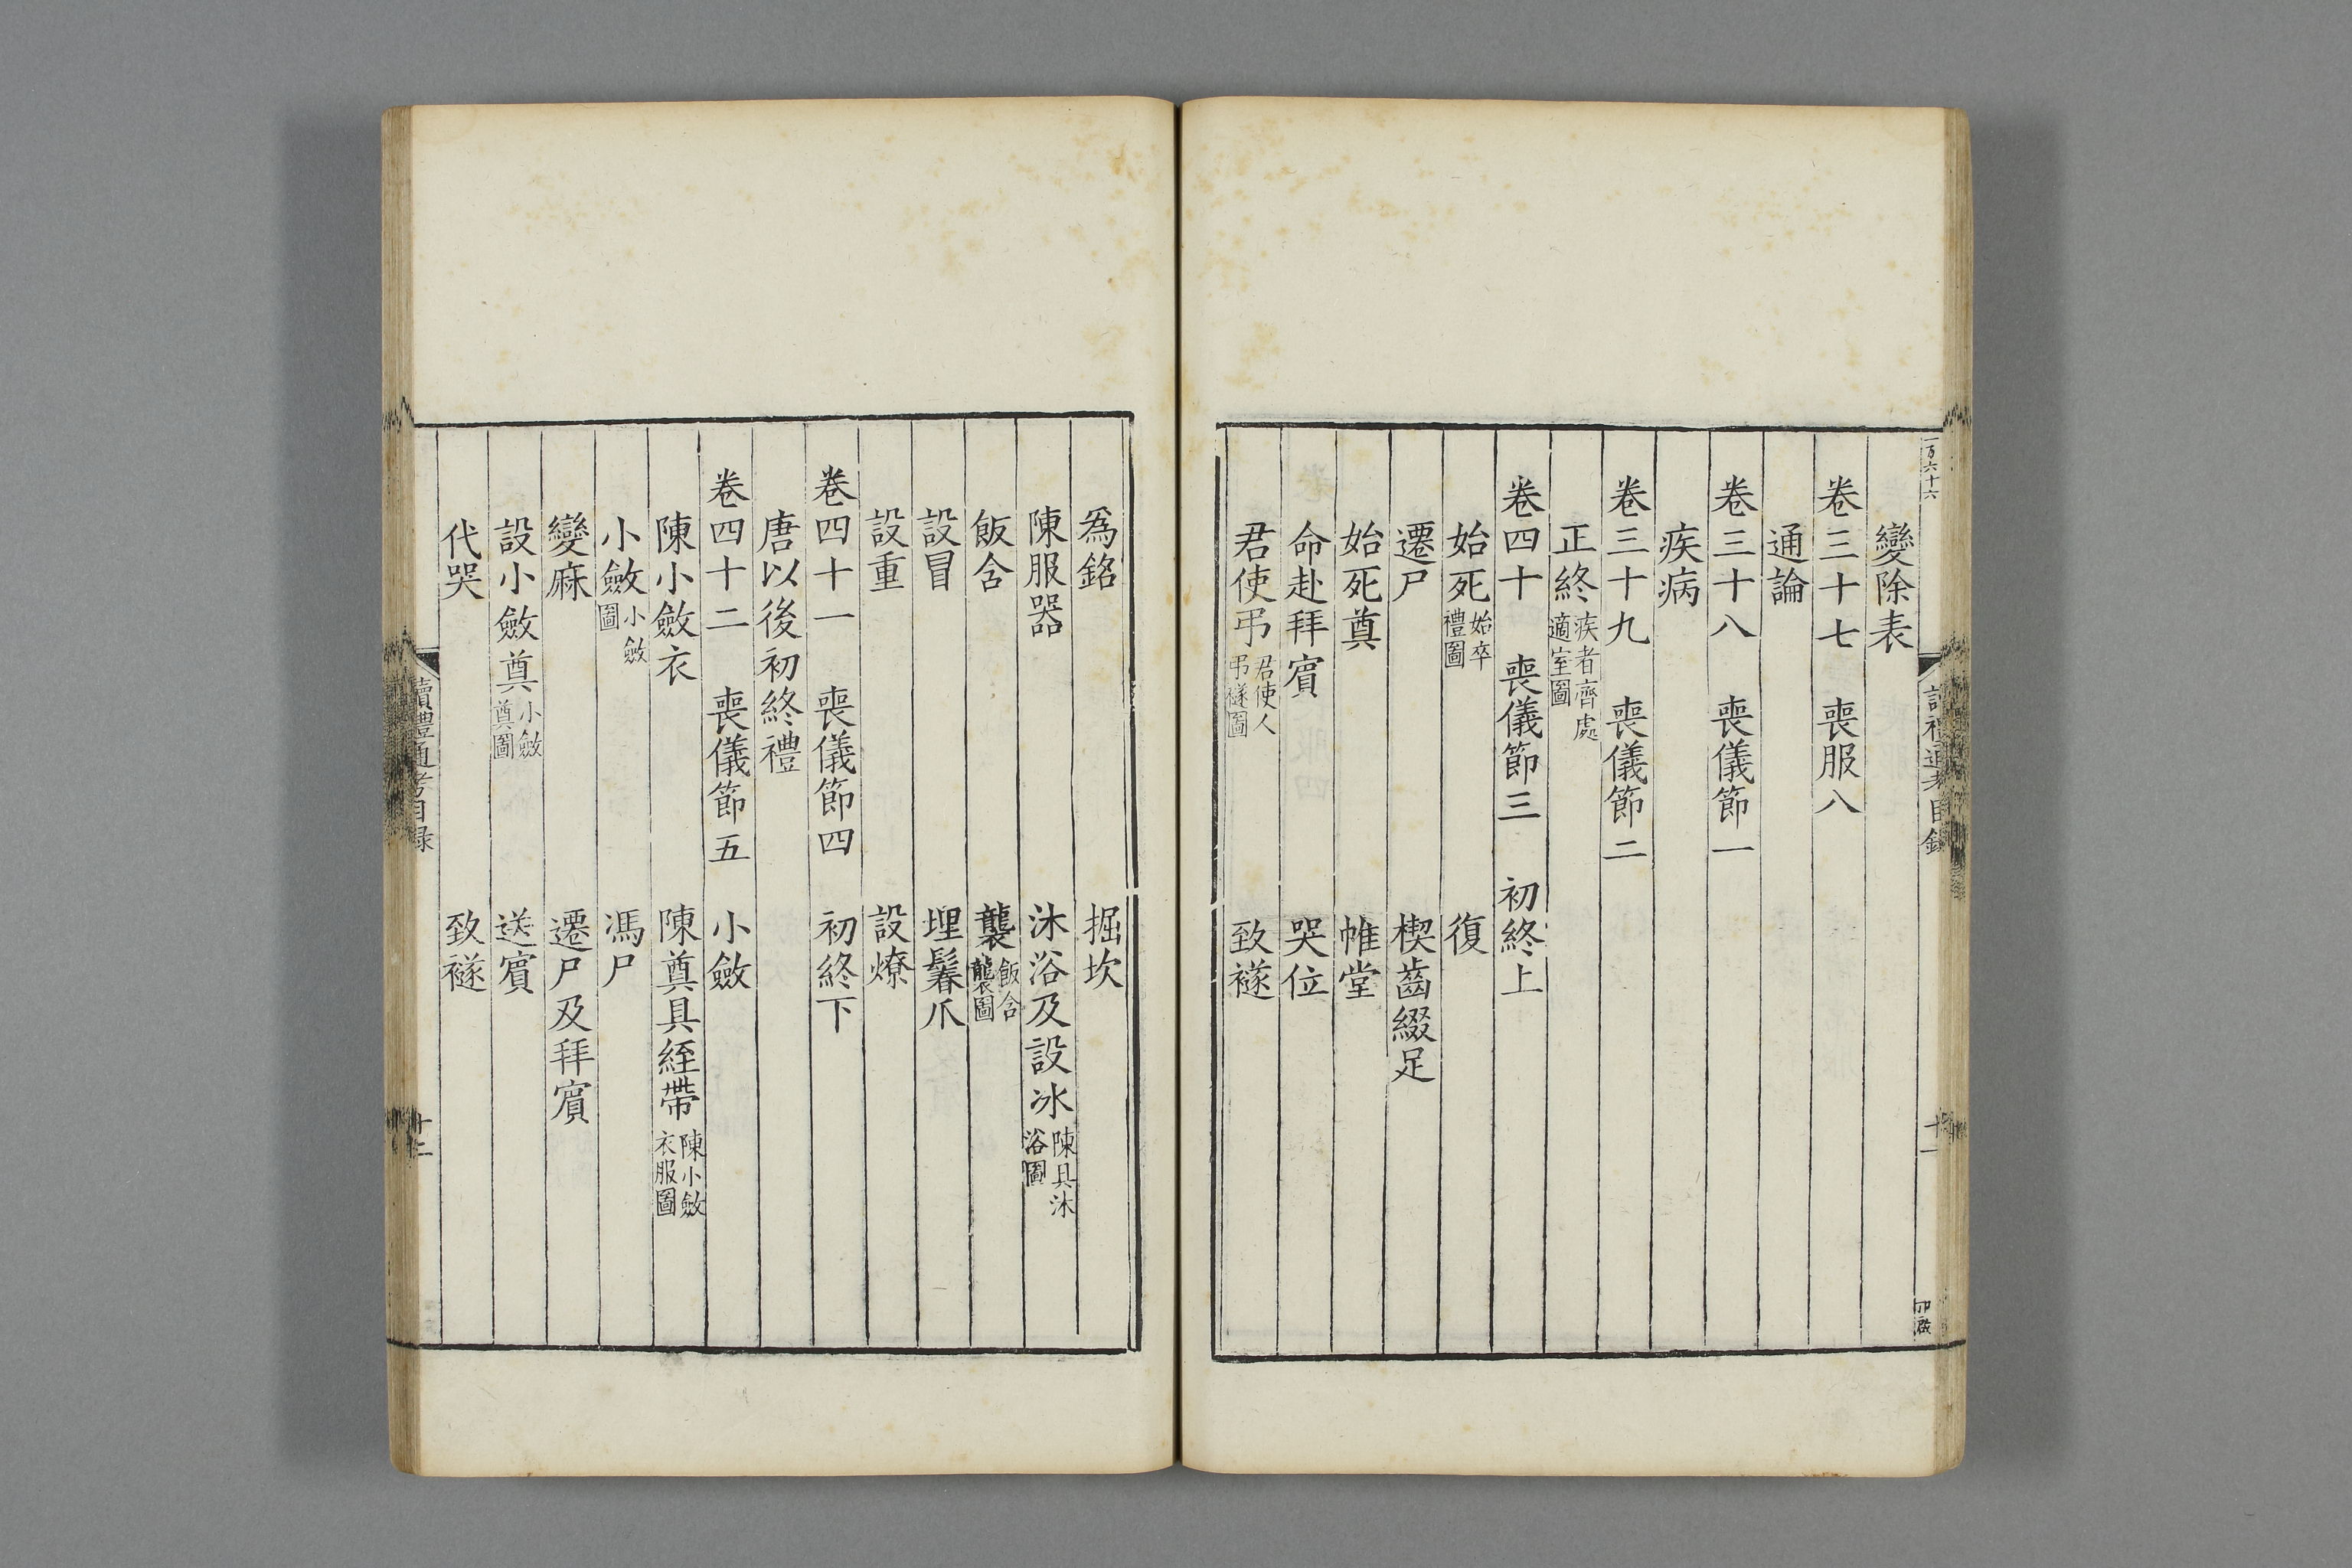 一百六十六
讀禮通考目錄
十一
變除表
卷三十七　喪服八
通論
卷三十八　喪儀節一
疾病
卷三十九　喪儀節二
正終疾者齊處適室圖
卷四十　喪儀節三　初終上
始死始卒禮圖　復
遷尸　楔齒綴足
始死奠　帷堂
命赴拜賓　哭位
君使弔君使人弔襚圖　致襚
爲銘　掘坎
陳服器　沐浴及設冰陳具沐浴圖
飯含　襲飯含襲圖
設冒　埋鬊爪
設重　設燎
卷四十一　喪儀節四　初終下
唐以後初終禮
卷四十二　喪儀節五　小斂
陳小斂衣　陳奠具絰帶陳小斂衣服圖
小斂小斂圖　馮尸
變麻　遷尸及拜賓
設小斂奠小斂奠圖　送賓
代哭　致襚
讀禮通考目錄
十二